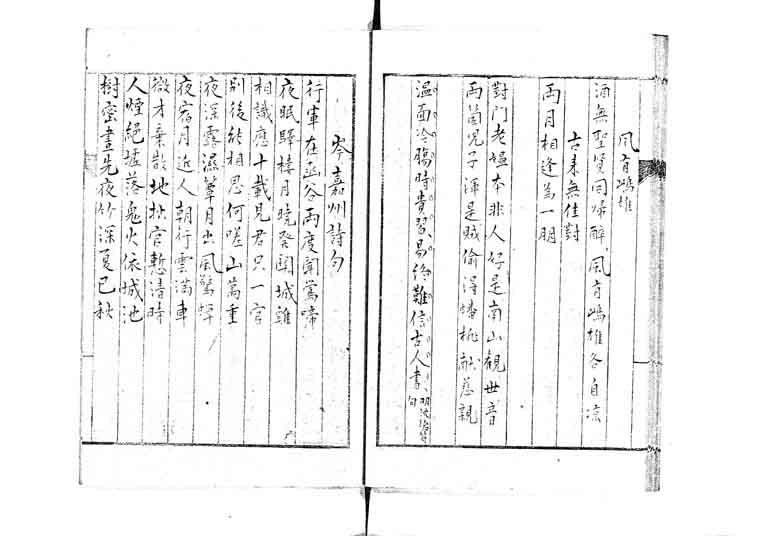 風有雌雄
酒無聖賢同歸醉風有雌雄各自涼
古來無佳對
兩月相逢為一朋
對門老嫗本非人好是南山觀世音
兩箇兒子渾是賊偷得蟠桃献慈親
溫面冷腸時貴習易治難信古人書
岑嘉州詩句
行軍在函谷兩度聞鶯啼
夜眠驛樓月曉發關城雞
相識應十載見君只一官
別後能相思何嗟山萬重
夜深露濕簟月出風驚蟬
夜宿月近人朝行雲滿車
微才棄散地拙官慙清時
人煙絕墟落鬼火依城池
樹密晝先夜竹深夏已秋